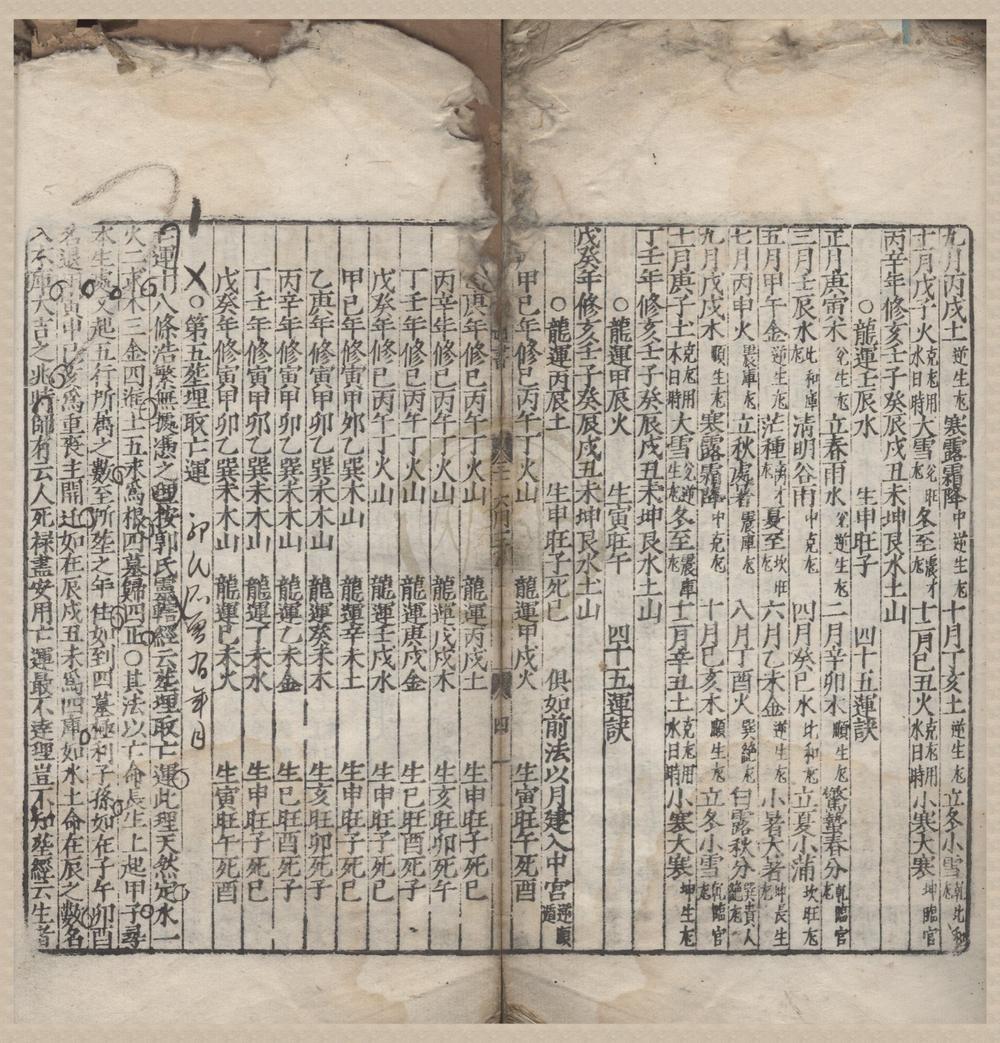 九月丙戌土 逆生尅 寒露霜降 中逆生尅 十月丁亥土 逆生尅 立冬小雪 乾比和尅
十一月戊子火 克尅用水日時 大雪 兌旺尅 冬至 震才尅 十二月己丑火 克尅用水日時 小寒大寒 坤臨官
丙辛年修亥壬子癸辰戌丑未坤艮水土山
○龍運壬辰水 生申旺子 四十五運訣
正月庚寅木 兌生尅 立春雨水 兌逆生尅 二月辛卯木 順生尅 驚蟄春分 乾臨官尅
三月壬辰水 比和庫尅 清明谷雨 中克尅 四月癸巳水 比和尅 立夏小滿 坎旺尅
五月甲午金 逆生尅 芒種 离才尅 夏至 坎旺尅 六月乙未金 逆生尅 小暑大暑 坤長生尅
七月丙申火 震庫尅 立秋處暑 震庫尅 八月丁酉火 巽絶尅 白露秋分 巽貴人絶尅
九月戊戌木 順生尅 寒露霜降 中克尅 十月己亥木 順生尅 立冬小雪 乾臨官尅
十一月庚子土 克尅用木日時 大雪 兌逆生尅 冬至 震庫尅 十二月辛丑土 克尅用水日時 小寒大寒 坤生尅
丁壬年修亥壬子癸辰戌丑未坤艮水土山
○龍運甲辰火 生寅旺午 四十五運訣
戊癸年修亥壬子癸辰戌丑未坤艮水土山
○龍運丙辰土 生申旺子死巳 俱如前法以月建入中宮 逆順遁
甲己年修巳丙午丁火山 龍運甲戌火 生寅旺午死酉
乙庚年修巳丙午丁火山 龍運丙戌土 生申旺子死巳
丙辛年修巳丙午丁火山 龍運戊戌木 生亥旺卯死午
丁壬年修巳丙午丁火山 龍運庚戌金 生巳旺酉死子
戊癸年修巳丙午丁火山 龍運壬戌水 生申旺子死巳
甲己年修寅甲卯乙巽木山 龍運辛未土 生申旺子死巳
乙庚年修寅甲卯乙巽木木山 龍運癸未木 生亥旺卯死子
丙辛年修寅甲卯乙巽木木山 龍運乙未金 生巳旺酉死子
丁壬年修寅甲卯乙巽木木山 龍運丁未水 生申旺子死巳
戊癸年修寅甲卯乙巽木木山 龍運己未火 生寅旺午死酉
○第五塋理取亡運
亡運十八條浩繁無據憑之理按郭氏靈轄經云塋理取亡運此理天然定水一
火二求木三金四漲上五求為根四墓歸四正○其法以亡命長生上起甲子尋
本生處又起五行所雋之數至所塋之年住如到四墓極利子孫如在子午卯酉
名退神寅申巳亥為重喪主開迁如在辰戌丑未為四庫如水土命在辰之數名
入本庫大吉之兆蔣師有云人死禄盡安用亡運最不達理豈不知塋經云生者